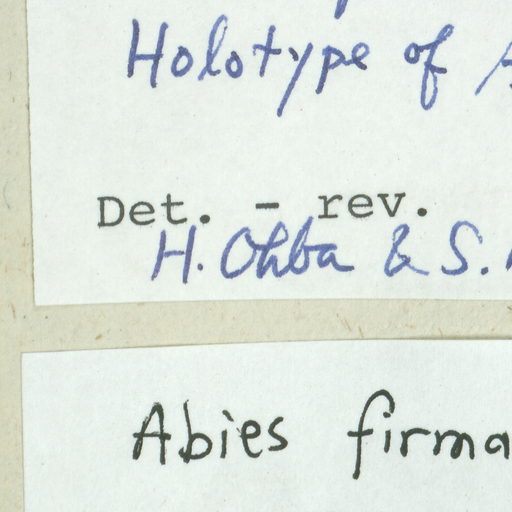 Holotype of
Det. - rev.
H. Ohba & S.
Abies firma